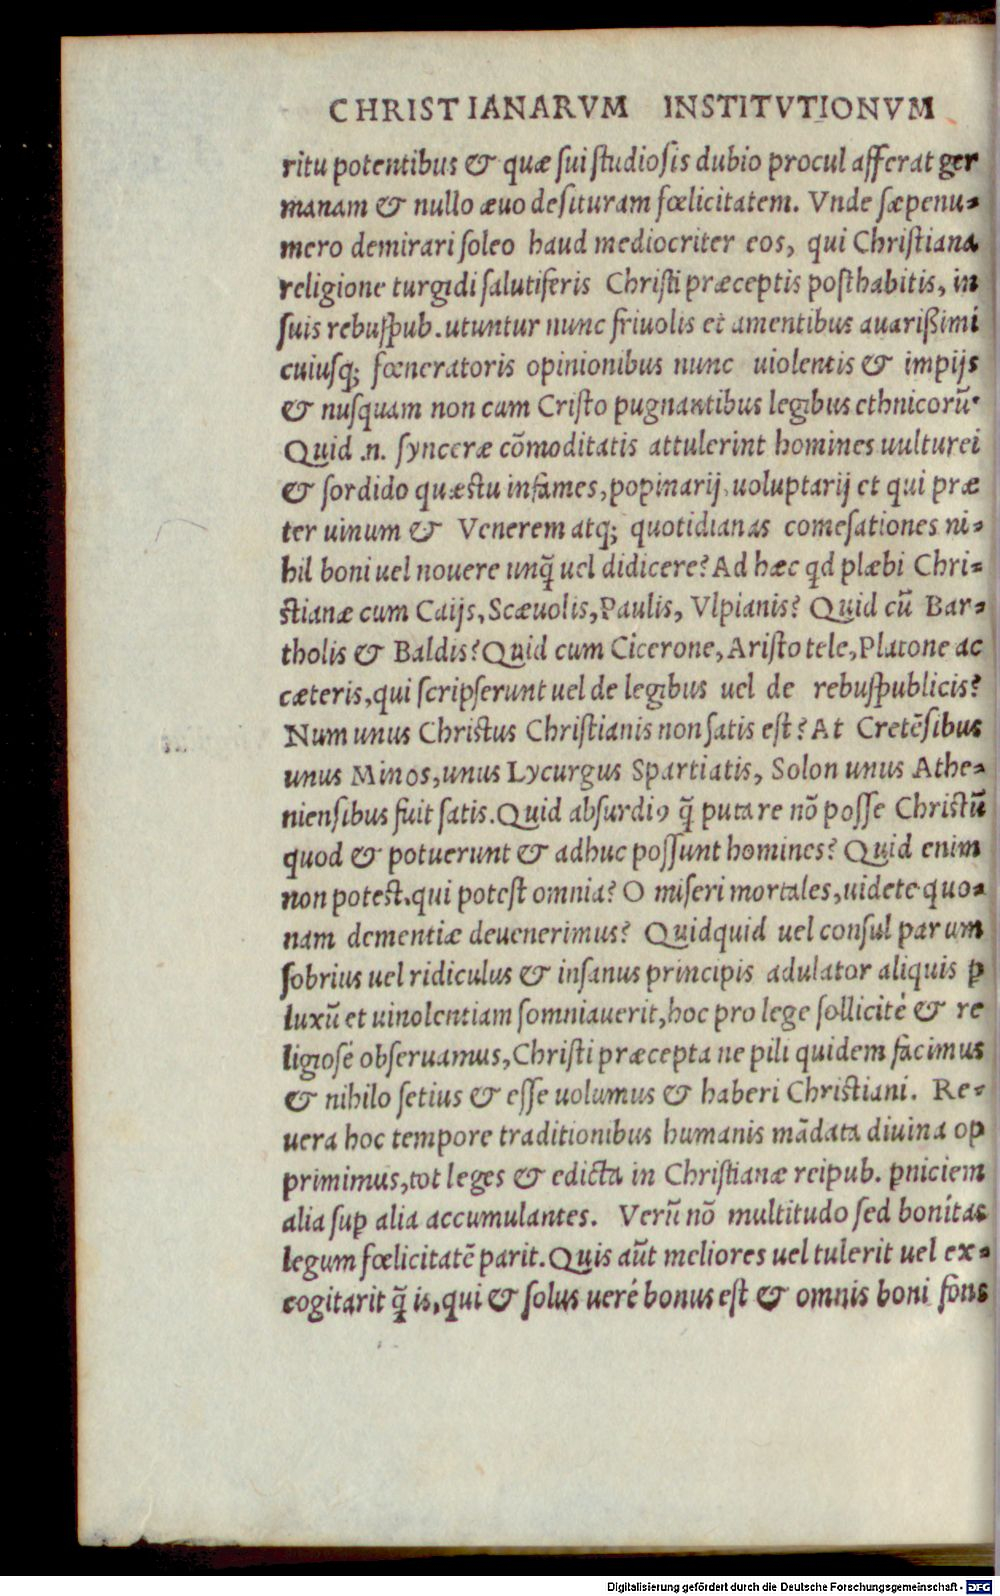 CHRISTIANARVM INSTITVTIONVM
ritu potentibus & quæ sui studiosis dubio procul afferat ger
manam & nullo æuo desituram fœlicitatem. Vnde sæpenu-
mero demirari soleo haud mediocriter eos, qui Christiana
religione turgidi salutiferis Christi præceptis posthabitis, in
suis rebuspub. utuntur nunc friuolis et amentibus auarißimi
cuiusq; fœneratoris opinionibus nunc uiolentis & impijs
& nusquam non cum Cristo pugnantibus legibus ethnicorū.
Quid .n. synceræ cōmoditatis attulerint homines uulturei
& sordido quæstu infames, popinarij, uoluptarij et qui præ
ter uinum & Venerem atq; quotidianas comesationes ni-
hil boni uel nouere unq̄ uel didicere? Ad hæc qd plæbi Chri-
stianæ cum Caijs, Scæuolis, Paulis, Vlpianis? Quid cū Bar-
tholis & Baldis? Quid cum Cicerone, Aristotele, Platone ac
cæteris, qui scripserunt uel de legibus uel de rebuspublicis?
Num unus Christus Christianis non satis est? At Cretēsibus
unus Minos, unus Lycurgus Spartiatis, Solon unus Athe-
niensibus fuit satis. Quid absurdiꝰ q̄ putare nō posse Christū
quod & potuerunt & adhuc possunt homines? Quid enim
non potest, qui potest omnia? O miseri mortales, uidete quo-
nam dementiæ deuenerimus? Quidquid uel consul parum
sobrius uel ridiculus & insanus principis adulator aliquis ꝑ
luxū et uinolentiam somniauerit, hoc pro lege sollicité & re
ligiosé obseruamus, Christi præcepta ne pili quidem facimus
& nihilo setius & esse uolumus & haberi Christiani. Re-
uera hoc tempore traditionibus humanis mādata diuina op
primimus, tot leges & edicta in Christianæ reipub. ꝑniciem
alia suꝑ alia accumulantes. Verū nō multitudo sed bonitas
legum fœlicitatē parit. Quis aūt meliores uel tulerit uel ex-
cogitarit q̄ is, qui & solus ueré bonus est & omnis boni fons
Digitalisierung gefördert durch die Deutsche Forschungsgemeinschaft - DFG